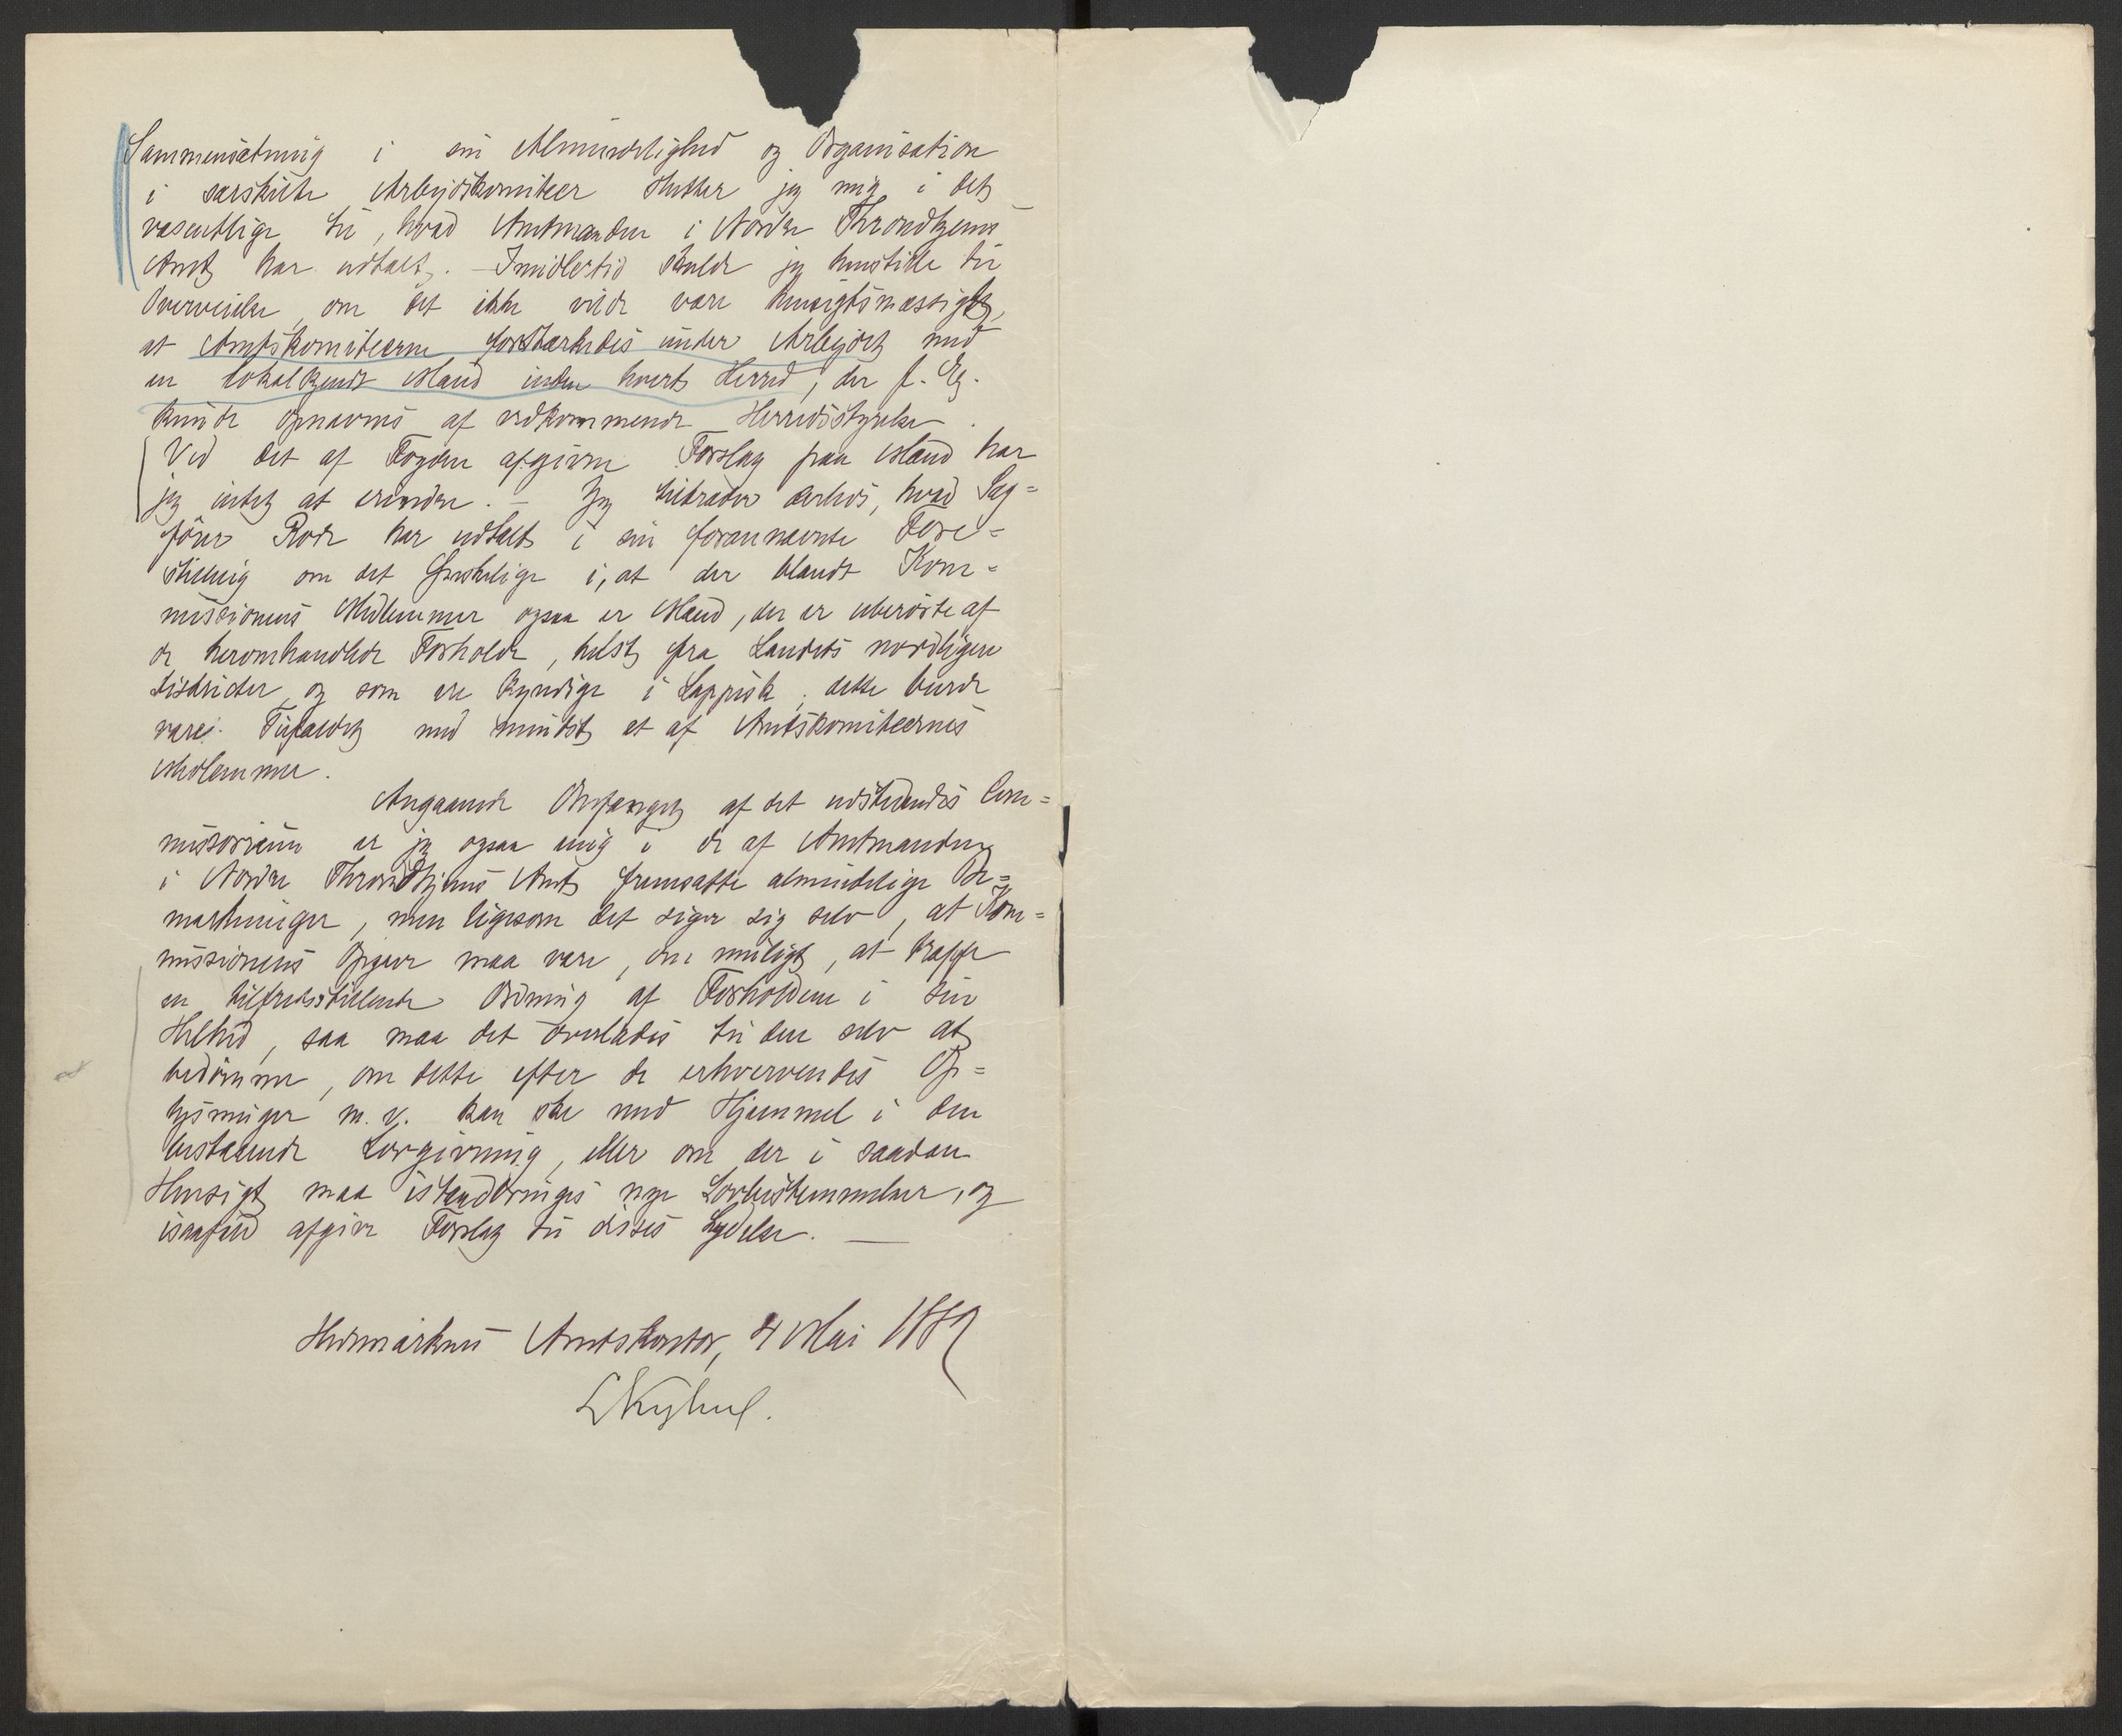 Sammensætning i sin Almindelighed og Organisation
i særskilte Arbejdskomiteer slutter jeg mig i det
væsentlige til, hvad Amtmanden i Nordre Throndhjems
Amt har udtalt. – Imidlertid skulde jeg henstille til
Overveielse, om det ikke vilde være hensigtsmæssigt,
at Amtskomiteerne forstærkedes under Arbejdet med
en lokalkjendt Mand inden hvert Herred, der f. Ex.
kunde opnævnes af vedkommende Herredsstyrelse.
Ved det af Fogden afgivne Forslag paa Mænd har
jeg intet at erindre. – Jeg tiltræder derhos, hvad Sag=
fører Rode har udtalt i sin forannævnte Fore=
stilling om det ønskelige i, at der blandt Kom=
missionens Medlemmer ogsaa er Mænd, der er uberørte af
de heromhandlede Forholde, helst fra Landets nordligere
Distrikter, og som ere kyndige i Lappisk; dette burde
være Tilfældet med mindst et af Amtskomiteernes
Medlemmer.
Angaaende Omfanget af det udstedendes Com=
missorium er jeg ogsaa enig i de af Amtmanden
i Nordre Throndhjems Amt fremsatte almindelige Be=
mærkninger, men ligesom det siger sig selv, at Kom=
missionens Opgave maa være, om muligt, at træffe
en tilfredsstillende Ordning af Forholdene i sin
Helhed, saa maa det overlades til den selv at
bedømme, om dette efter de erhvervendes Op=
lysninger m. v. kan ske med Hjemmel i den
bestaaende Lovgivning, eller om der i saadan
Hensigt maa istandbringes nye Lovbestemmelser, og
isaafald afgive Forslag til disses Lydelse. —
Hedemarkens Amtskontor, 4 Mai 1889
LKyhn.